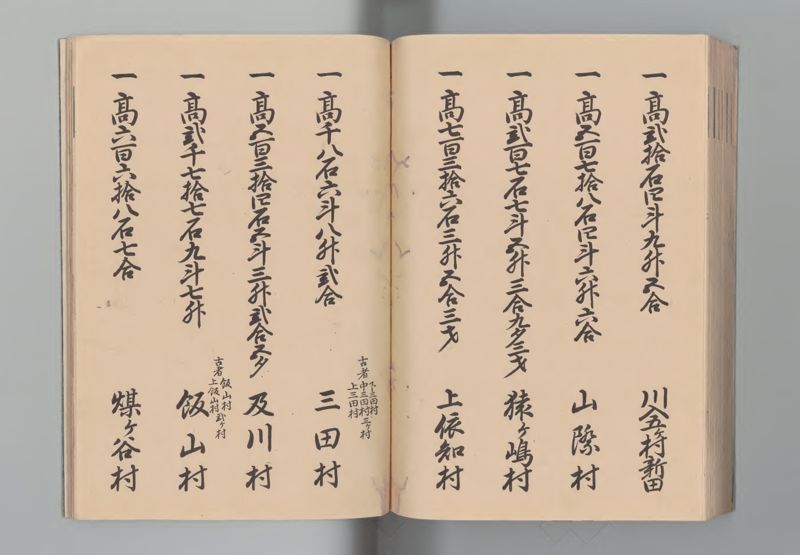 一高弐拾石四斗九升五合 川五ヶ村新田
一高五百七拾八石四斗六升六合 山際村
一高弐百七石七斗五升三合九夕三才 猿ヶ嶋村
一高七百三拾六石三升五合三才 上依知村
古者 下三田村
中三田村 三ヶ村
上三田村
一高千八石六斗八升弐合 三田村
一高五百三拾四石五斗三升弐合五夕 及川村
古者 飯山村
上飯山村 弐ヶ村
一高弐千七拾七石九斗七升 飯山村
一高六百六拾八石七合 煤ヶ谷村